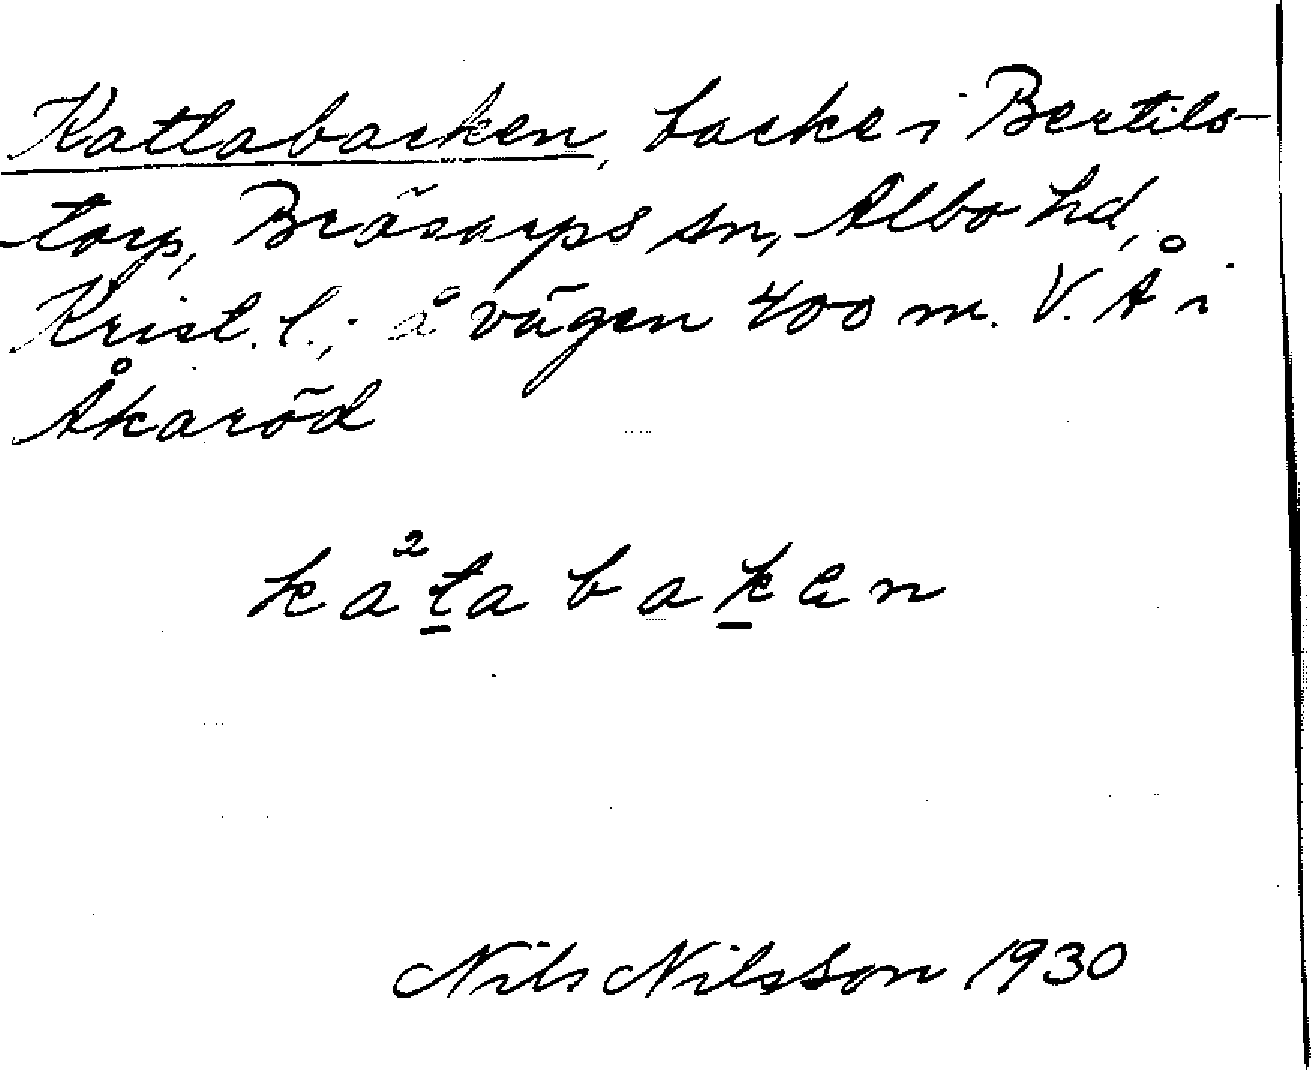 Katlabacken, backe i Bertils-
torp, Bräsarps sn, Albo hd,
Krist. l.; å vägen 400 m. V. Å i
Åkaröd
ka²tabaken
Nils Nilsson 1930